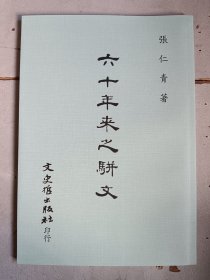 張仁青著
六十年来之駢文
文史哲出版社印行